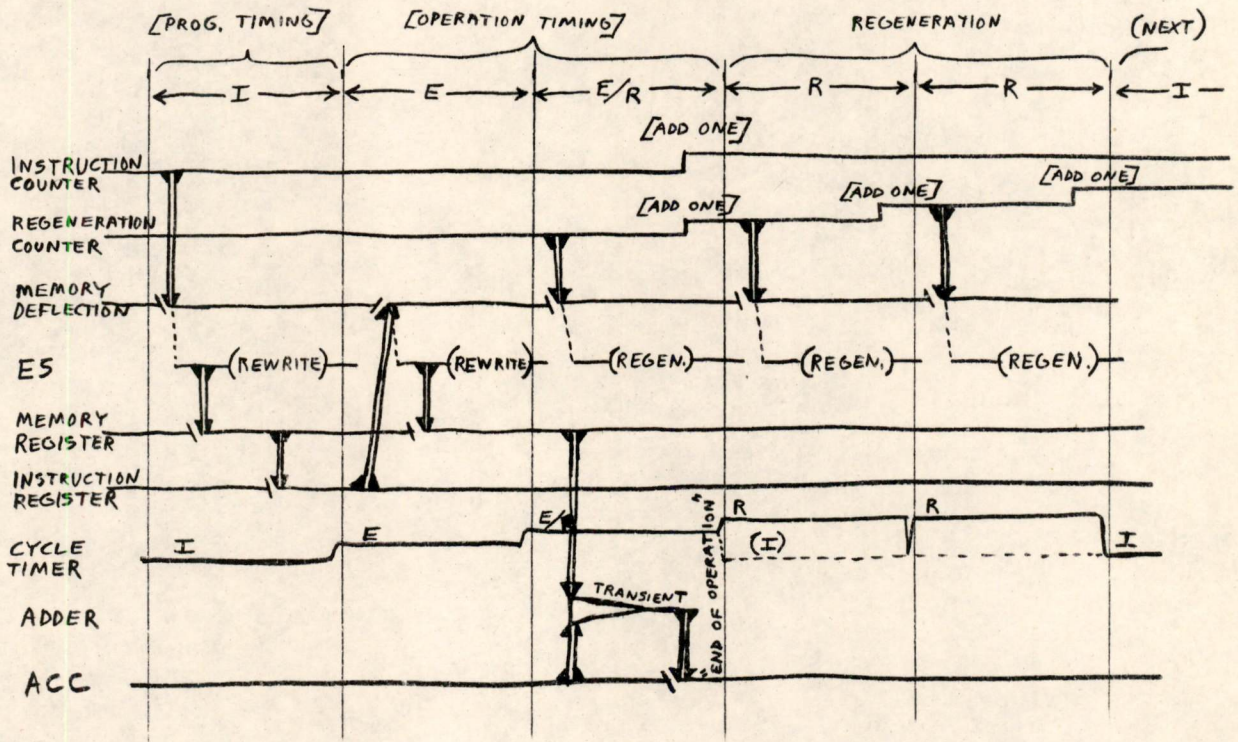 [PROG. TIMING] [OPERATION TIMING] REGENERATION (NEXT)
I E E/R R R I
[ADD ONE]
INSTRUCTION
COUNTER
[ADD ONE] [ADD ONE] [ADD ONE]
REGENERATION
COUNTER
MEMORY
DEFLECTION
ES (REWRITE) (REWRITE) (REGEN.) (REGEN.) (REGEN.)
MEMORY
REGISTER
INSTRUCTION
REGISTER
CYCLE
TIMER
I E E/R R (I) R I
"END OF OPERATION"
ADDER TRANSIENT
ACC